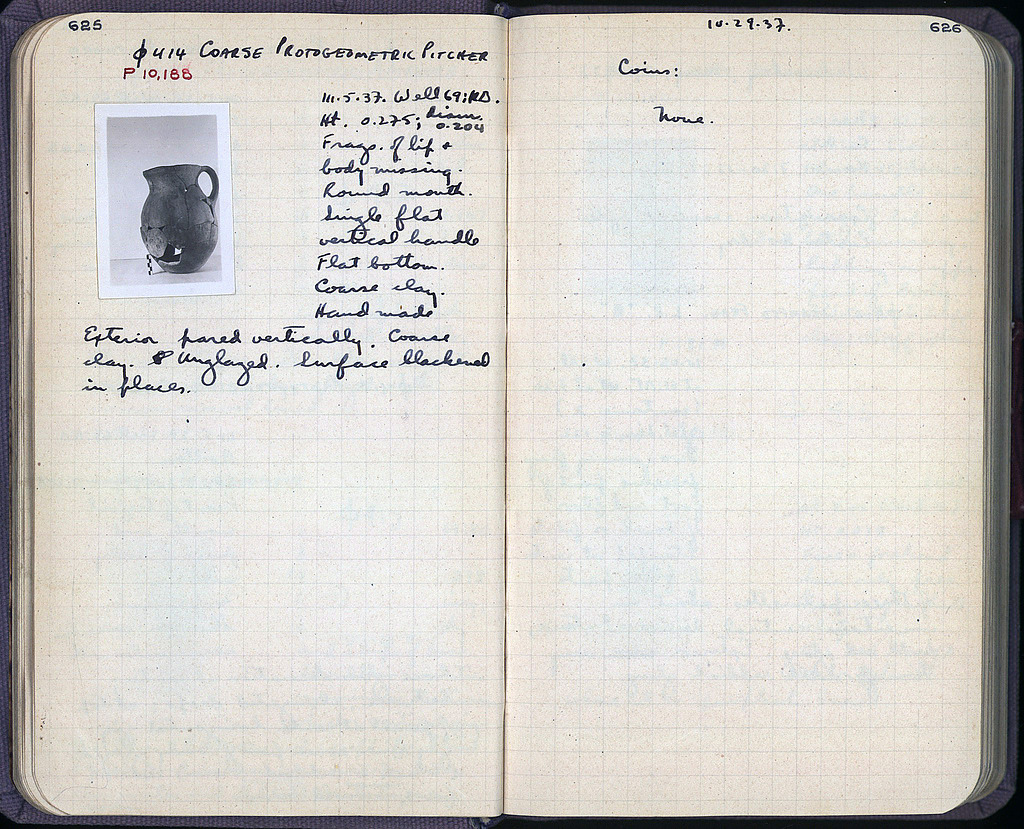 625
φ414 COARSE PROTOGEOMETRIC PITCHER
P 10,188
III.5.37. Well 69;
Ht. 0.275; Diam. 0.204
Frags. of lip &
body missing.
Round mouth.
Single flat
vertical handle
Flat bottom.
Coarse clay.
Hand made
Exterior pared vertically. Coarse
clay. Unglazed. Surface blackened
in places.
10.29.37.
626
Coins:
None.